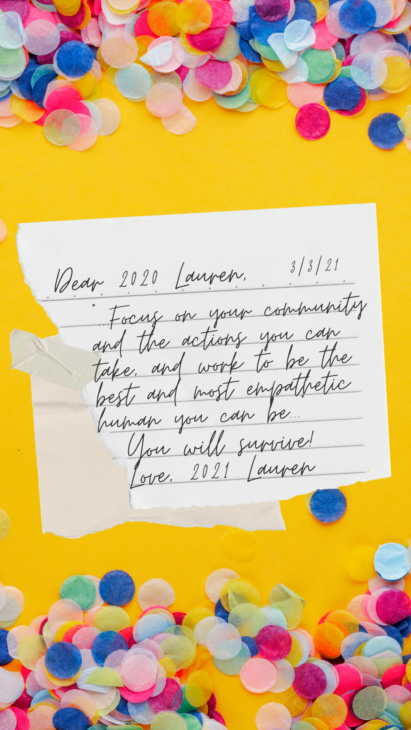 Dear 2020 Lauren, 3/3/21
...Focus on your community
and the actions you can
take, and work to be the
best and most empathetic
human you can be...
You will survive!
Love, 2021 Lauren